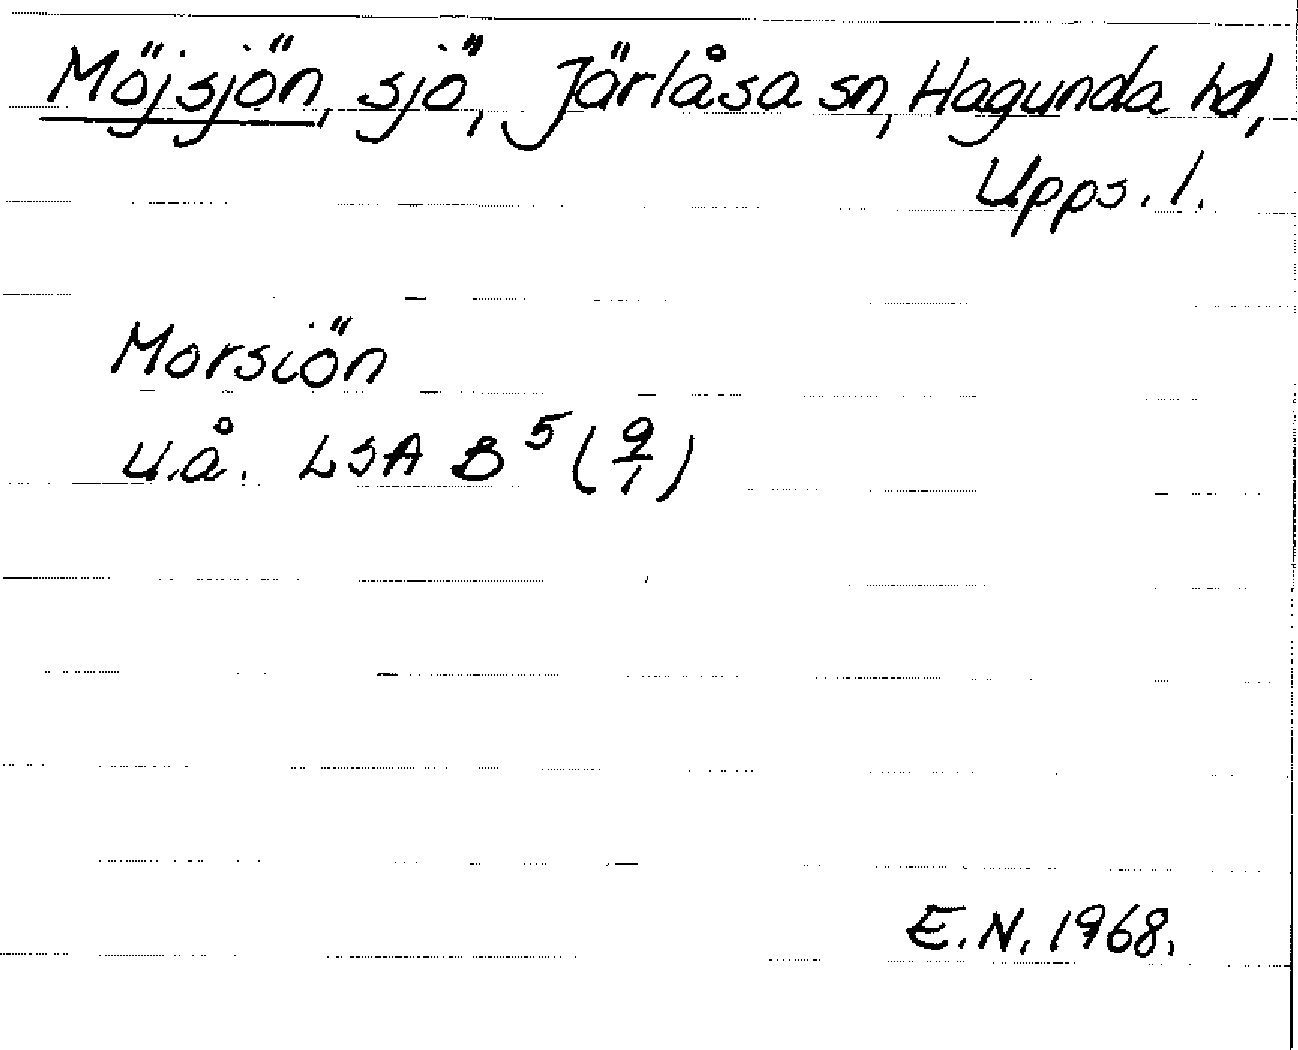 Möjsjön, sjö, Järlåsa sn, Hagunda hd,
Upps. l.
Morsiön
u.å. LSA B⁵ (9/1)
E.N. 1968.